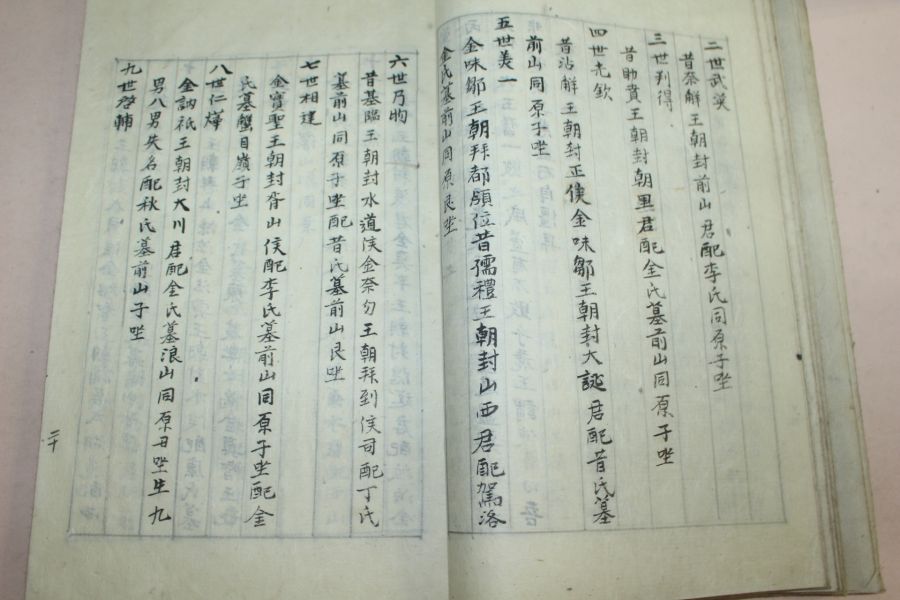 二世武奕
昔奈解王朝封前山君配李氏同原子坐
三世判得
昔助賁王朝封朝里君配金氏墓前山同原子坐
四世光欽
昔沾解王朝封正侯金味鄒王朝封大誕君配昔氏墓
前山同原子坐
五世美一
金味鄒王朝拜都領位昔孺禮王朝封山西君配駕洛
金氏墓前山同原艮坐
六世乃昀
昔基臨王朝封水道侯金奈勿王朝拜到侯司配丁氏
墓前山同原子坐配昔氏墓前山艮坐
七世相達
金實聖王朝封斧山侯配李氏墓前山同原子坐配金
氏墓蟹目嶺子坐
八世仁燁
金訥祇王朝封大川君配金氏墓浪山同原丑坐生九
男八男失名配秋氏墓前山子坐
九世啓輔
二十